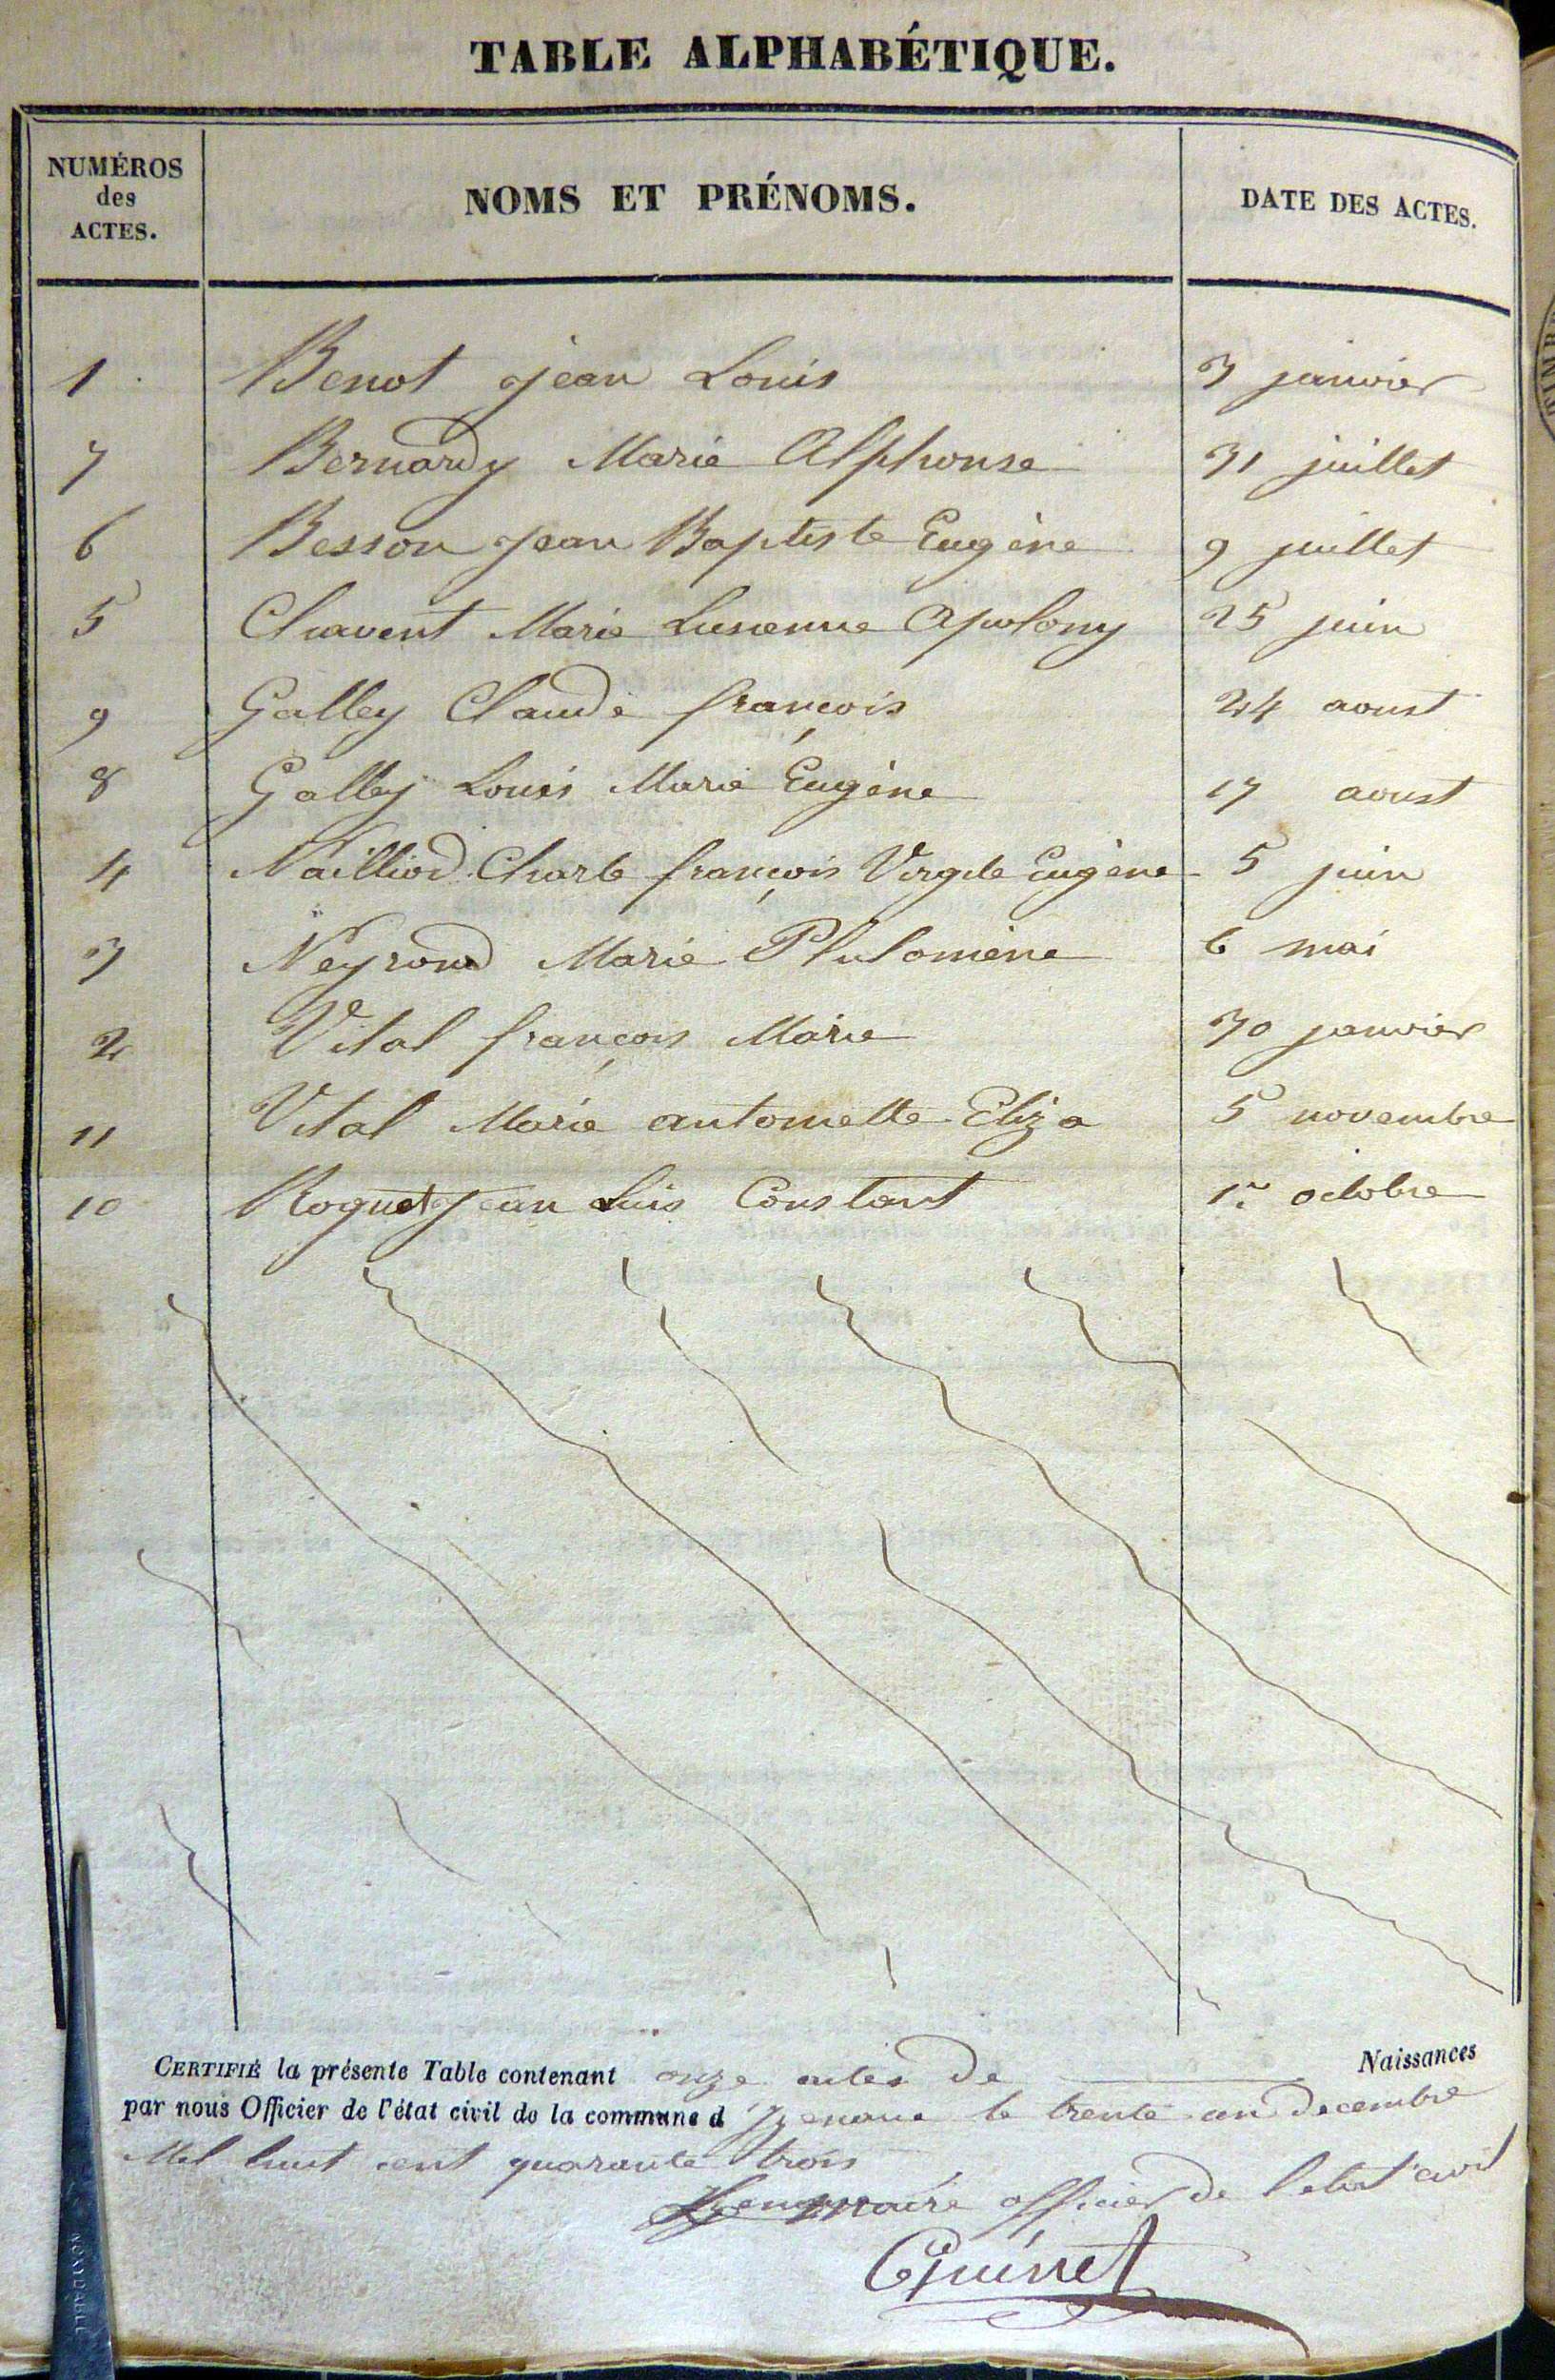 TABLE ALPHABÉTIQUE.
NUMÉROS
des
ACTES.
NOMS ET PRÉNOMS.
DATE DES ACTES.
1 Benot jean Louis 3 janvier
7 Bernardy Marie Alphonse 31 juillet
6 Besson jean Baptiste Eugène 9 juillet
5 Chavent Marie Apolony 25 juin
9 Galley Claude françois 24 aoust
8 Galley Louis Marie Eugène 17 aoust
4 Nailliod Charle françois Virgile Eugène 5 juin
3 Neyroud Marie Philomène 6 mai
2 Vital françois Marie 30 janvier
11 Vital Marie antoinette Eliza 5 novembre
10 Roguet jean Luis Constant 1er octobre
CERTIFIÉ la présente Table contenant onze actes de Naissances
par nous Officier de l'état civil de la commune d' Izenave le trente un decembre
Mil huit cent quarante trois
maire officier de l'etat civil
Guinet
NOXYDABLE